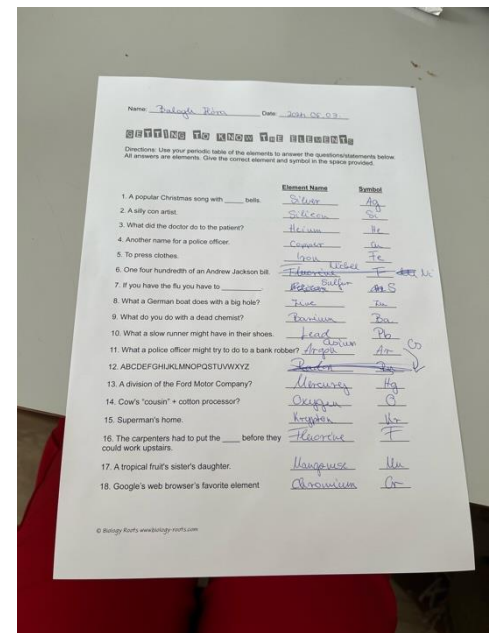 Name: Balogh Nóra Date:
GETTING TO KNOW THE ELEMENTS
Directions: Use your periodic table of the elements to answer the questions/statements below.
All answers are elements. Give the correct element and symbol in the space provided.
Element Name Symbol
1. A popular Christmas song with _____ bells. Silver Ag
2. A silly con artist. Silicon Si
3. What did the doctor do to the patient? Helium He
4. Another name for a police officer. Copper Cu
5. To press clothes. Iron Fe
6. One four hundredth of an Andrew Jackson bill. Fluorine Nickel F Ni
7. If you have the flu you have to _____. Sulfur S
8. What a German boat does with a big hole? Zinc Zn
9. What do you do with a dead chemist? Barium Ba
10. What a slow runner might have in their shoes. Lead Pb
11. What a police officer might try to do to a bank robber? Argon Ar
12. ABCDEFGHIJKLMNOPQSTUVWXYZ Radon
13. A division of the Ford Motor Company? Mercury Hg
14. Cow's "cousin" + cotton processor? Oxygen O
15. Superman's home. Krypton Kr
16. The carpenters had to put the ____ before they Fluorine F
could work upstairs.
17. A tropical fruit's sister's daughter. Manganese Mn
18. Google's web browser's favorite element Chromium Cr
© Biology Roots www.biology-roots.com